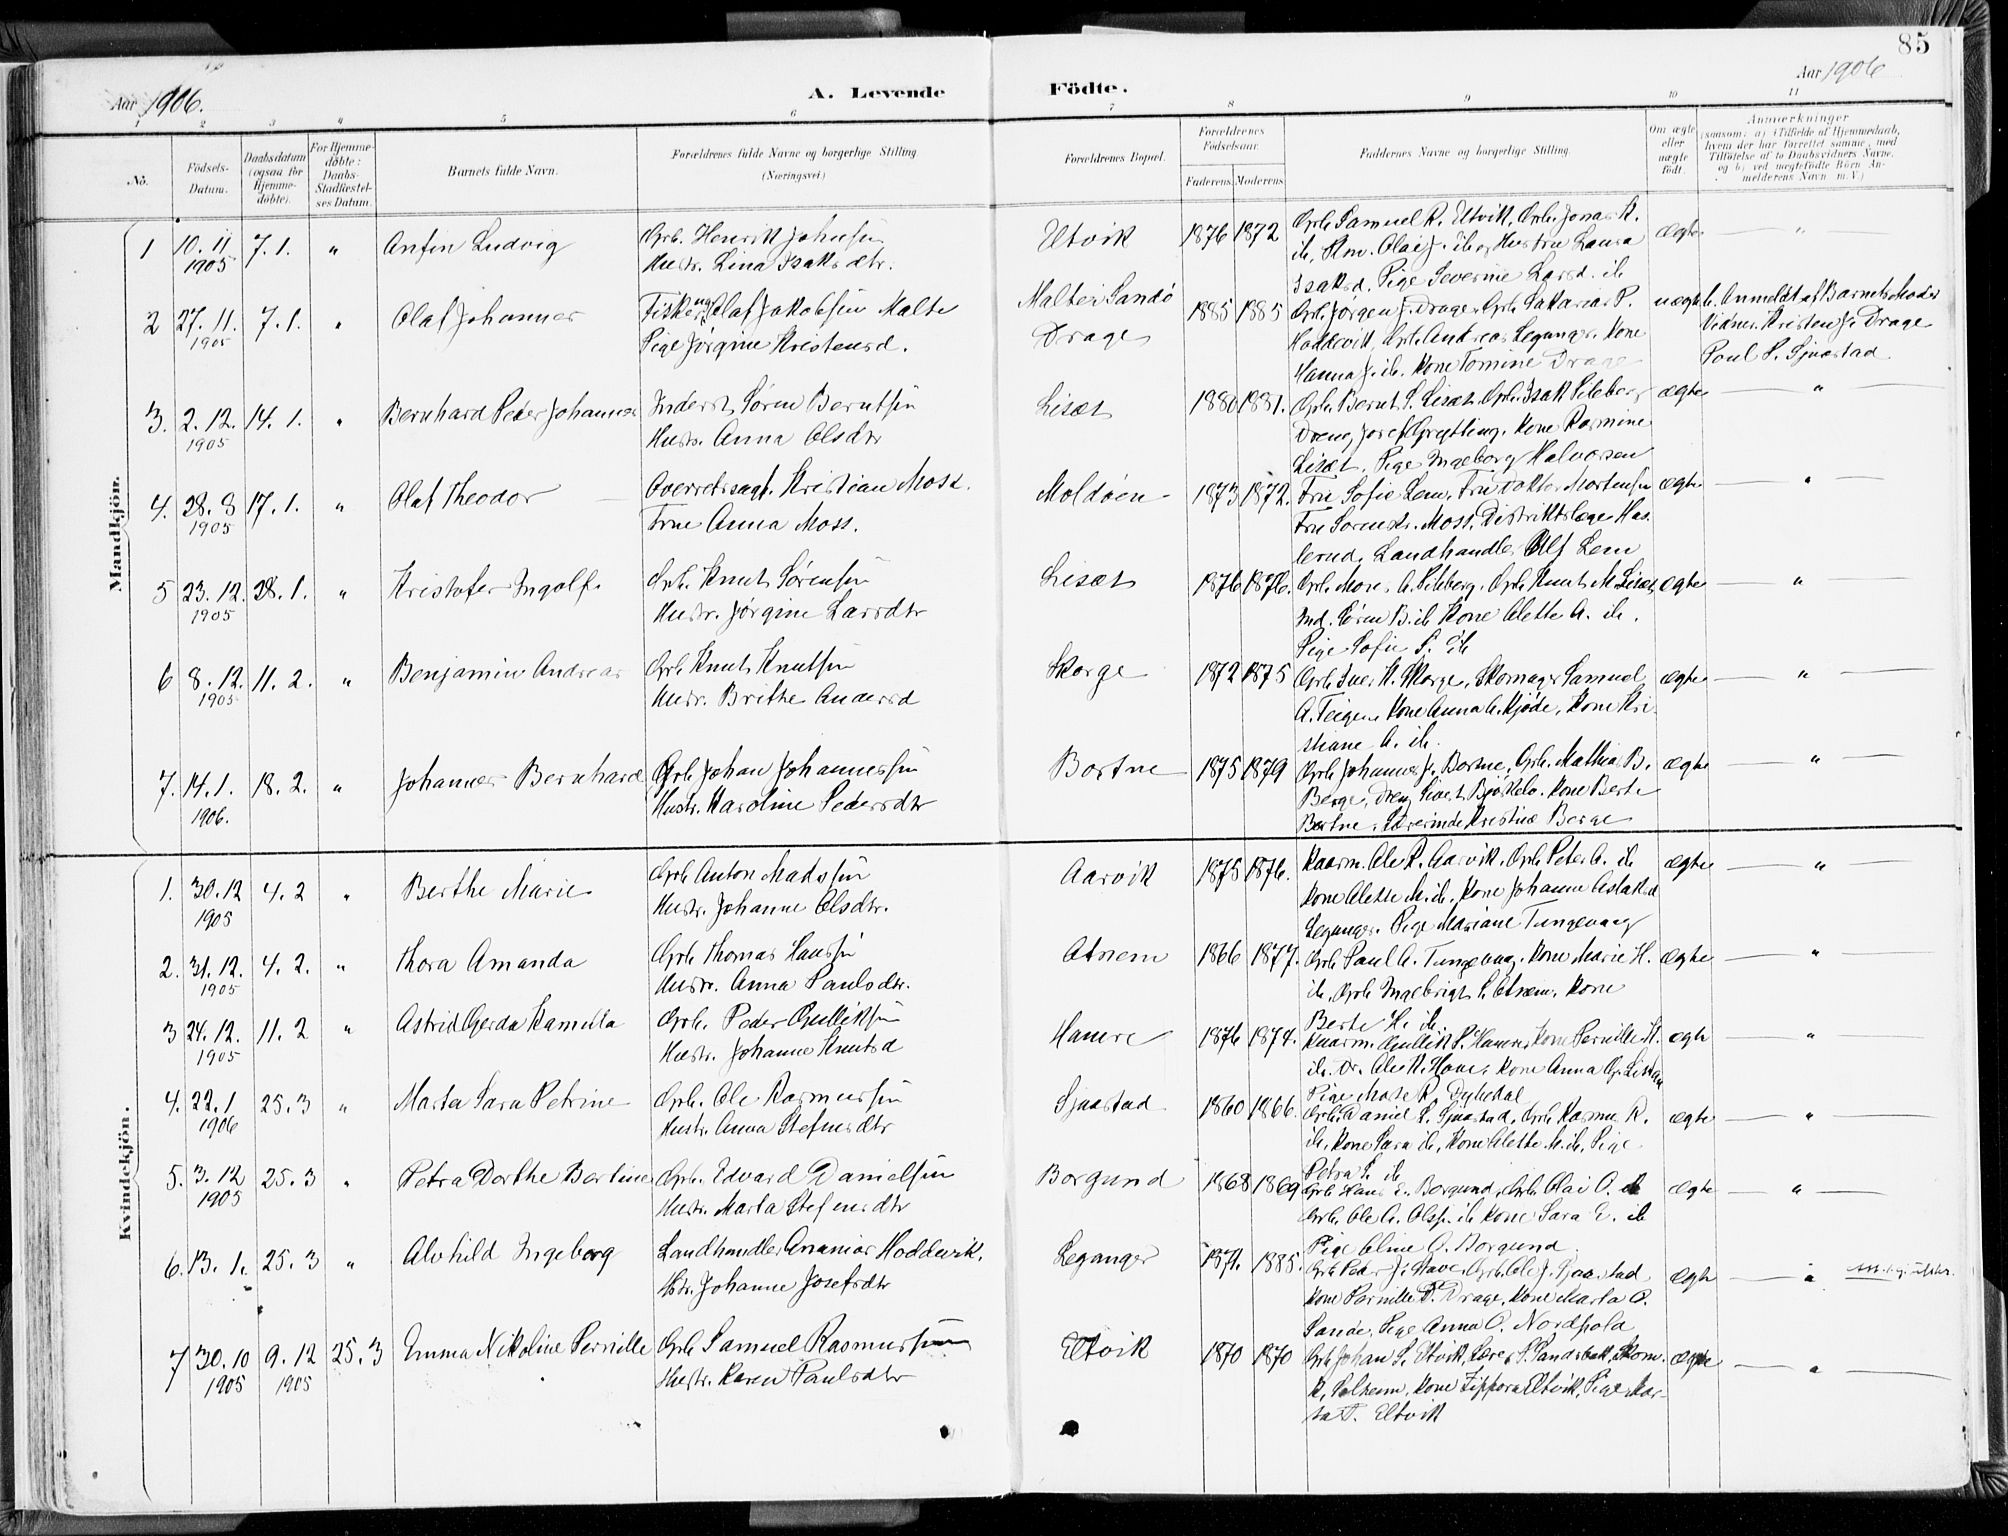 85
Aar 1906.
A. Levende
Födte.
Aar 1906
1 2 3 4 5 6 7 8 9 10 11
No.
Födsels-Datum.
Daabsdatum (ogsaa for Hjemme-döbte).
For Hjemme-döbte: Daabs-Stadfæstel-ses Datum.
Barnets fulde Navn.
Forældrenes fulde Navne og borgerlige Stilling
(Næringsvei.)
Forældrenes Bopæl.
Forældrenes Födselsaar.
Faderens. Moderens.
Faddernes Navne og borgerlige Stilling.
Om ægte eller uægte födt.
Anmærkninger
(saasom: a) i Tilfælde af Hjemmedaab,
hvem der har forrettet samme, med
Tilföielse af to Daabsvidners Navne,
og b) ved uægtefödte Börn An-
melderens Navn m. V.)
Mandkjön.
1 10.11 1905 7.1. " Anfin Ludvig
Grb. Henrik Johnsen
Hustr. Lina Isaksdtr.
Eltvik 1876 1872
Grb. Samuel R. Eltvik, Grb. Jonas R.
ib, Olai J. ib og Hustru Laura
Isaksd. Pige Severine Larsd. ib
ægte — " —
2 27.11. 1905 7.1. " Olaf Johannes
Fisker ug. Olaf Jakobsen Malte
Pige Jørgine Kristensd.
Malte i Sandø
Drage
1885 1885
Grb. Jørgen J. Drage, Grb. Sakarias P.
Hoddevik, Grb. Andreas Leganger, Kone
Hanna J. ib. Kone Tomine Drage
uægte b. Anmeldt af Barnets Moder
Vidner Kristen J. Drage
Poul S. Sjaastad
3. 2.12. 1905 14.1. " Bernhard Peder Johannes
Inderst Søren Berntsen
Hustr. Anna Olsdtr
Lisæt 1880 1881.
Grb. Bernt S. Lisæt, Grb. Isak Sileberg
Dreng Josef Grytting, Kone Rasmine
Lisæt, Pige Ingeborg Halvorsen
ægte — " —
4. 28.8 1905 17.1. " Olaf Theodor
Overretssagf. Kristian Moss.
Frue Anna Moss.
Moldøen 1873 1872.
Fru Sofie Lem, Fru Doktor Mortensen
Fru Sorenskr. Moss, Distriktslæge Has-
lerud, Landhandler Ulf Lem
ægte — " —
5 23.12. 1905 28.1. " Kristofer Ingolf
Grb. Knut Sørensen
Hustr. Jørgine Larsdtr
Lisæt 1876 1876.
Grb. Mons A. Sileberg, Grb. Knut M. Lisæt
Ind. Søren B. ib Kone Alette A. ib.
Pige Sofie S. ib
ægte — " —
6 8.12. 1905 11.2. " Benjamin Andreas
Grb. Knut Knutsen
Hustr. Brithe Andersd
Skorge 1872 1875
Grb. Iver K. Skorge, Skomager Samuel
A. Teigen, Kone Anna A. Kjöde, Kone Kri-
stiane A. ib.
ægte — " —
7. 14.1. 1906. 18.2. " Johannes Bernhard
Grb. Johan Johannessen
Hustr. Karoline Pedersdtr
Bortne 1875 1879
Grb. Johannes J. Bortne, Grb. Mathias B.
Berge, Dreng Sivert, Kone Berte
Bortne, Lærerinde Kristine Berge
ægte — " —
Kvindekjön.
1. 30.12 1905 4.2 " Berthe Marie
Grb. Anton Madssen
Hustr. Johanne Olsdtr.
Aarvik 1875 1876.
Kaarm. Ole R. Aarvik, Grb. Peter A. ib
Kone Alette M. ib. Kone Johanne Aslaksd
Leganger. Pige Mariane Tungevaag
ægte — " —
2. 31.12. 1905 4.2. " Thora Amanda
Grb. Thomas Hanssen
Hustr. Anna Paulsdtr.
Otnem 1866 1877.
Grb. Paul A. Tungevaag, Kone Marie H.
ib, Grb Ingebrigt S. Otnem, Kone
Berte H. ib.
ægte — " —
3 24.12. 1905 11.2 " Astrid Gerda Kamilla
Grb. Peder Gulliksen
Hustr. Johanne Knutsd
Hamre 1876 1874.
Kaarm. Gullik P. Hamre, Kone Pernille K.
ib. Dr. Ole K. Hove, Kone Anna G.
Pige R. Dybedal
ægte — " —
4. 22.1 1906 25.3 " Marta Sara Petrine
Grb. Ole Rasmussen
Hustr. Anna Stefensdtr
Sjaastad 1860 1866.
Grb. Daniel S. Sjaastad, Grb. Rasmus R.
ib, Kone Sara ib, Kone Alette M. ib, Pige
Petra S. ib
ægte — " —
5. 3.12 1905 25.3 " Petra Dorthe Bertine
Grb. Edvard Danielsen
Hustr. Marta Stefensdtr
Borgund 1868 1869
Grb. Hans E. Borgund, Grb. Olai O. ib
Grb. Ole A. Olss. ib Kone Sara E. ib
Pige Oline O. Borgund.
ægte — " —
6. 13.1. 25.3 " Alvhild Ingeborg
Landhandler Ananias Hoddevik.
Hstr. Johanne Josefsdtr
Leganger 1871. 1885.
Grb. Peder J. Hove, Grb. Ole J. Sjaastad
Kone Pernille P. Drage, Kone Marta O.
Sande, Pige Anna O. Nordpold
ægte — " —
7 30.10 1905 9.12 1905 25.3 Emma Nikoline Pernille
Grb. Samuel Rasmussen
Hustr. Karen Paulsdtr
Eltvik 1870 1870
Grb. Johan S. Eltvik, Lærer S. Sandsbak, Skom.
K. Solheim, Kone Zippora Eltvik, Pige Mar-
ta P. Eltvik
ægte — " —